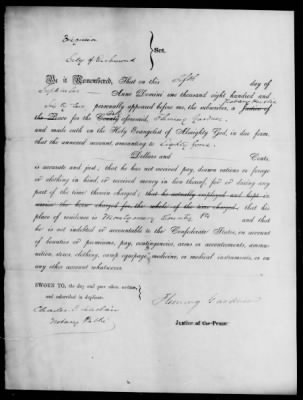 Virginia
City of Richmond } Sct.
Be it Remembered, That on this fifth day of
September Anno Domini one thousand eight hundred and
sixty two personally appeared before me, the subscriber, a Justice of Notary Public
the Peace for the County City aforesaid, Fleming Gardner
and made oath on the Holy Evangelist of Almighty God, in due form,
that the annexed account, amounting to Eighty four
Dollars and Cents,
is accurate and just; that he has not received pay, drawn rations or forage
or clothing in kind, or received money in lieu thereof, for or during any
part of the time therein charged; that he actually employed and kept in
service the horse charged for the whole of the time charged; that his
place of residence is Montgomery County Va and that
he is not indebted or accountable to the Confederate States, on account
of bounties or premiums, pay, contingencies, arms or accoutrements, ammu-
nition, stores, clothing, camp equipage, medicine, or medical instruments, or on
any other account whatsoever.
SWORN TO, the day and year above written,
and subscribed in duplicate.
Fleming Gardner
Charles
Notary Public
Justice of the Peace